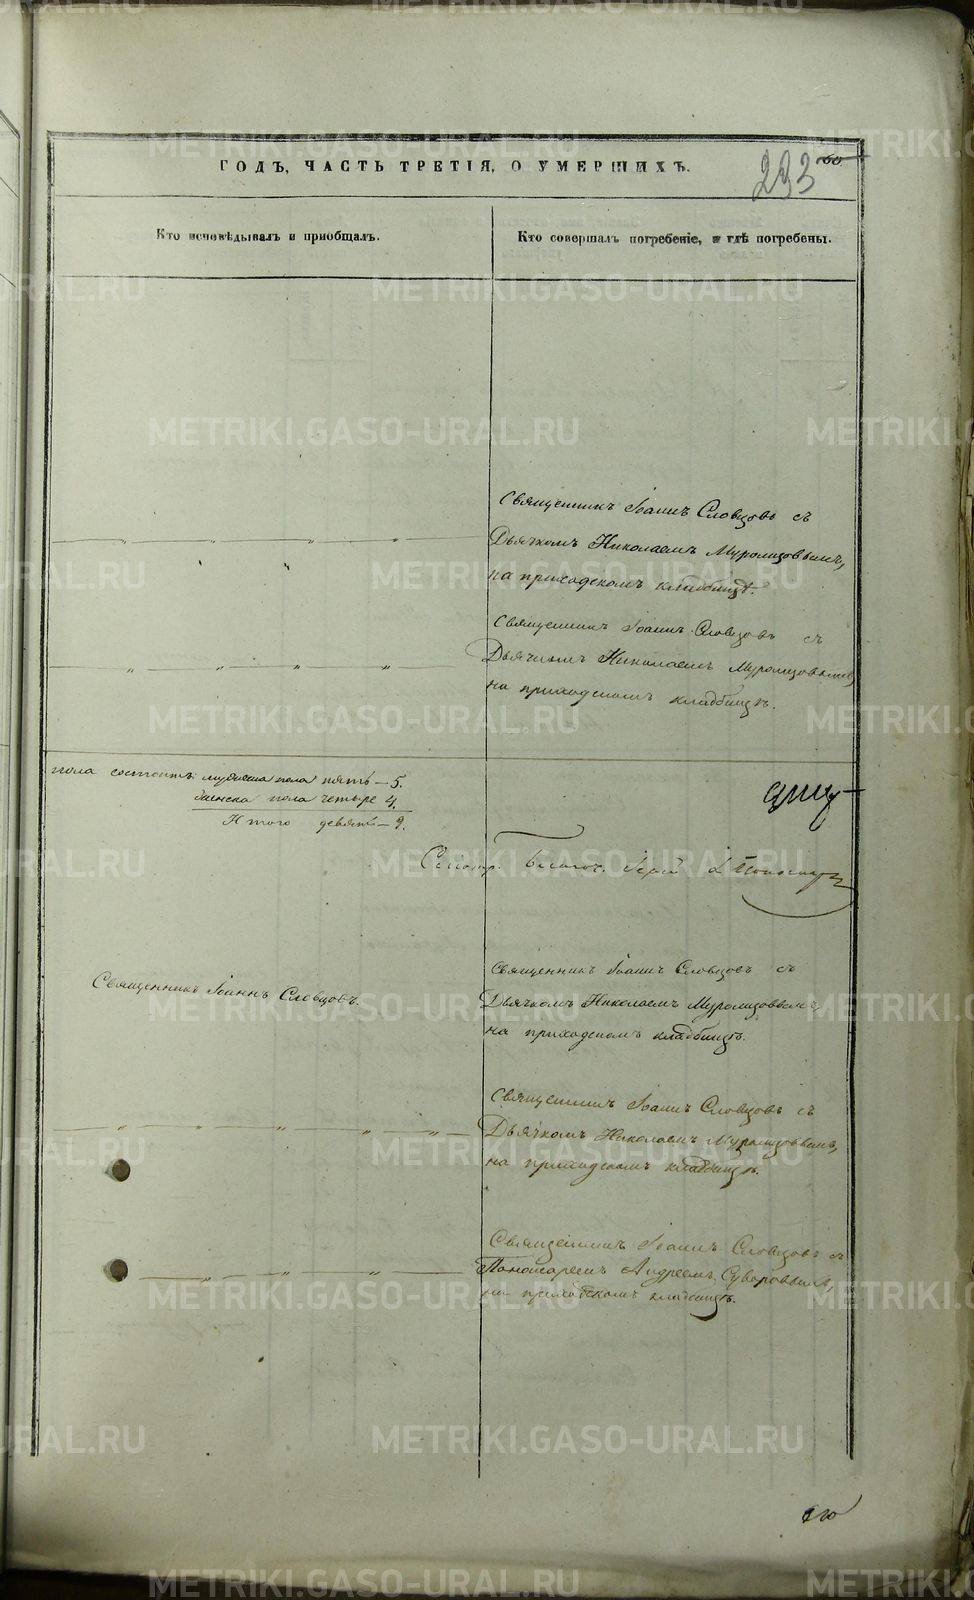 ГОДЪ, ЧАСТЬ ТРЕТІЯ, О УМЕРШИХЪ.
293
Кто исповѣдывалъ и пріобщалъ.
Кто совершалъ погребеніе, и гдѣ погребены.
Священникъ Іоаннъ Словцовъ съ
Дьячкомъ Николаемъ Муромцовымъ,
на приходскомъ кладбищѣ.
Священникъ Іоаннъ Словцовъ съ
Дьячкомъ Николаемъ Муромцовымъ,
на приходскомъ кладбищѣ.
пола состоитъ: мужеска пола пять – 5.
женска пола четыре 4.
Итого девять – 9.
Священникъ Іоаннъ Словцовъ.
Священникъ Іоаннъ Словцовъ съ
Дьячкомъ Николаемъ Муромцовымъ,
на приходскомъ кладбищѣ.
Священникъ Іоаннъ Словцовъ съ
Дьячкомъ Николаемъ Муромцовымъ,
на приходскомъ кладбищѣ.
Священникъ Іоаннъ Словцовъ съ
Пономаремъ Андреемъ Суворовымъ,
на приходскомъ кладбищѣ.
METRIKI.GASO-URAL.RU